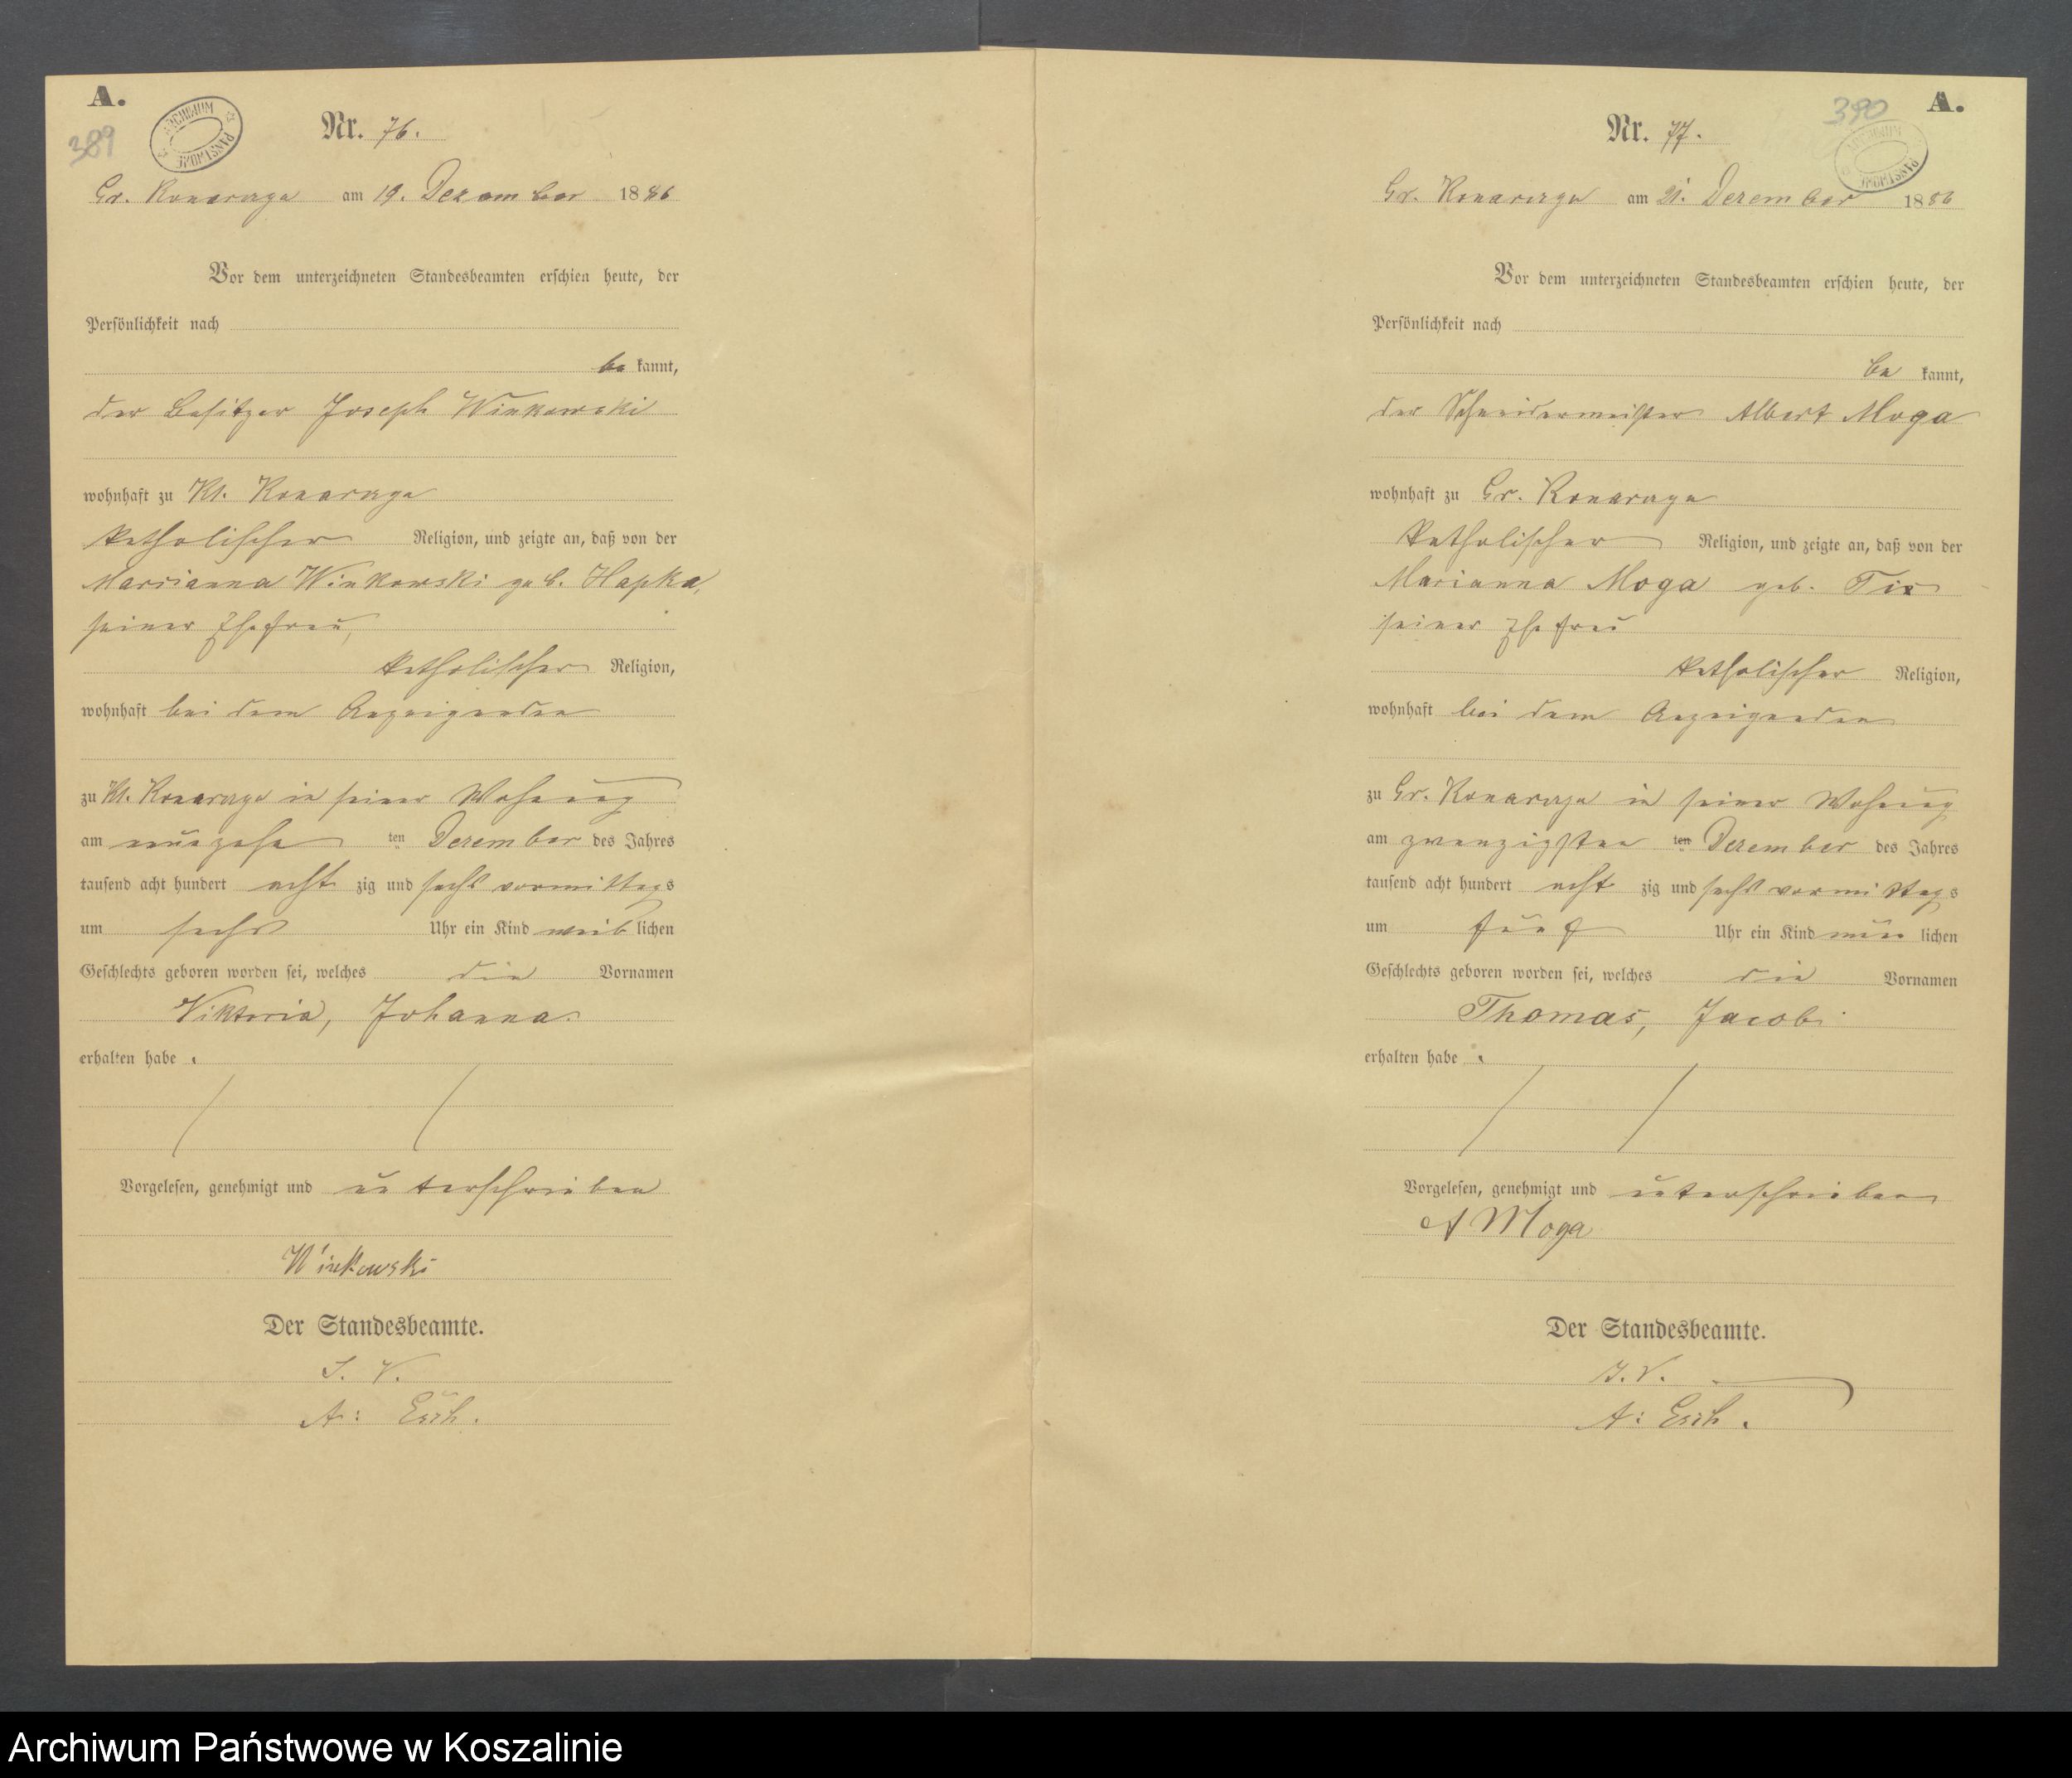 A.
389
ARCHIWUM PAŃSTWOWE
Nr. 76.
Gr. Konarczyn am 19. Dezember 1886
Vor dem unterzeichneten Standesbeamten erschien heute, der
Persönlichkeit nach
be kannt,
der Besitzer Joseph Winkowski
wohnhaft zu Kl. Konarczyn
katholischer Religion, und zeigte an, daß von der
Marianna Winkowski geb. Hapka,
seiner Ehefrau,
katholischer Religion,
wohnhaft bei dem Anzeigenden
zu Kl. Konarczyn in seiner Wohnung
am neunzehn ten Dezember des Jahres
tausend acht hundert acht zig und sechs vormittags
um sechs Uhr ein Kind weib lichen
Geschlechts geboren worden sei, welches die Vornamen
Viktoria, Johanna
erhalten habe.
Vorgelesen, genehmigt und unterschrieben
Winkowski
Der Standesbeamte.
I. V.
A: Esch.
390
A.
ARCHIWUM PAŃSTWOWE
Nr. 77.
Gr. Konarczyn am 21. Dezember 1886
Vor dem unterzeichneten Standesbeamten erschien heute, der
Persönlichkeit nach
be kannt,
der Schneidermeister Albert Moga
wohnhaft zu Gr. Konarczyn
katholischer Religion, und zeigte an, daß von der
Marianna Moga geb.
seiner Ehefrau
katholischer Religion,
wohnhaft bei dem Anzeigenden
zu Gr. Konarczyn in seiner Wohnung
am zwanzigsten ten Dezember des Jahres
tausend acht hundert acht zig und sechs vormittags
um fünf Uhr ein Kind män lichen
Geschlechts geboren worden sei, welches die Vornamen
Thomas, Jacob
erhalten habe.
Vorgelesen, genehmigt und unterschrieben
A Moga
Der Standesbeamte.
I. V.
A: Esch.
Archiwum Państwowe w Koszalinie